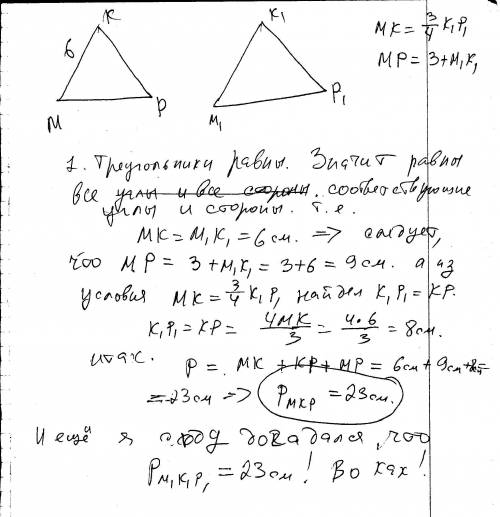 K
K₁
MK = 3/4 K₁P₁
6
MP = 3 + M₁K₁
M
P
M₁
P₁
1. Треугольники равны. Значит равны
все углы и все стороны. соответствующие
углы и стороны. т.е.
MK = M₁K₁ = 6 см. => следует,
что MP = 3 + M₁K₁ = 3+6 = 9 см. а из
условия MK = 3/4 K₁P₁ найдел K₁P₁ = KP.
K₁P₁ = KP = 4MK/3 = 4•6/3 = 8 см.
итак.
P = MK + KP + MP = 6 см + 9 см + 8 =
= 23 см => P MKP = 23 см.
И ещё я доgадался, что
P M₁K₁P₁ = 23 см! Во как!